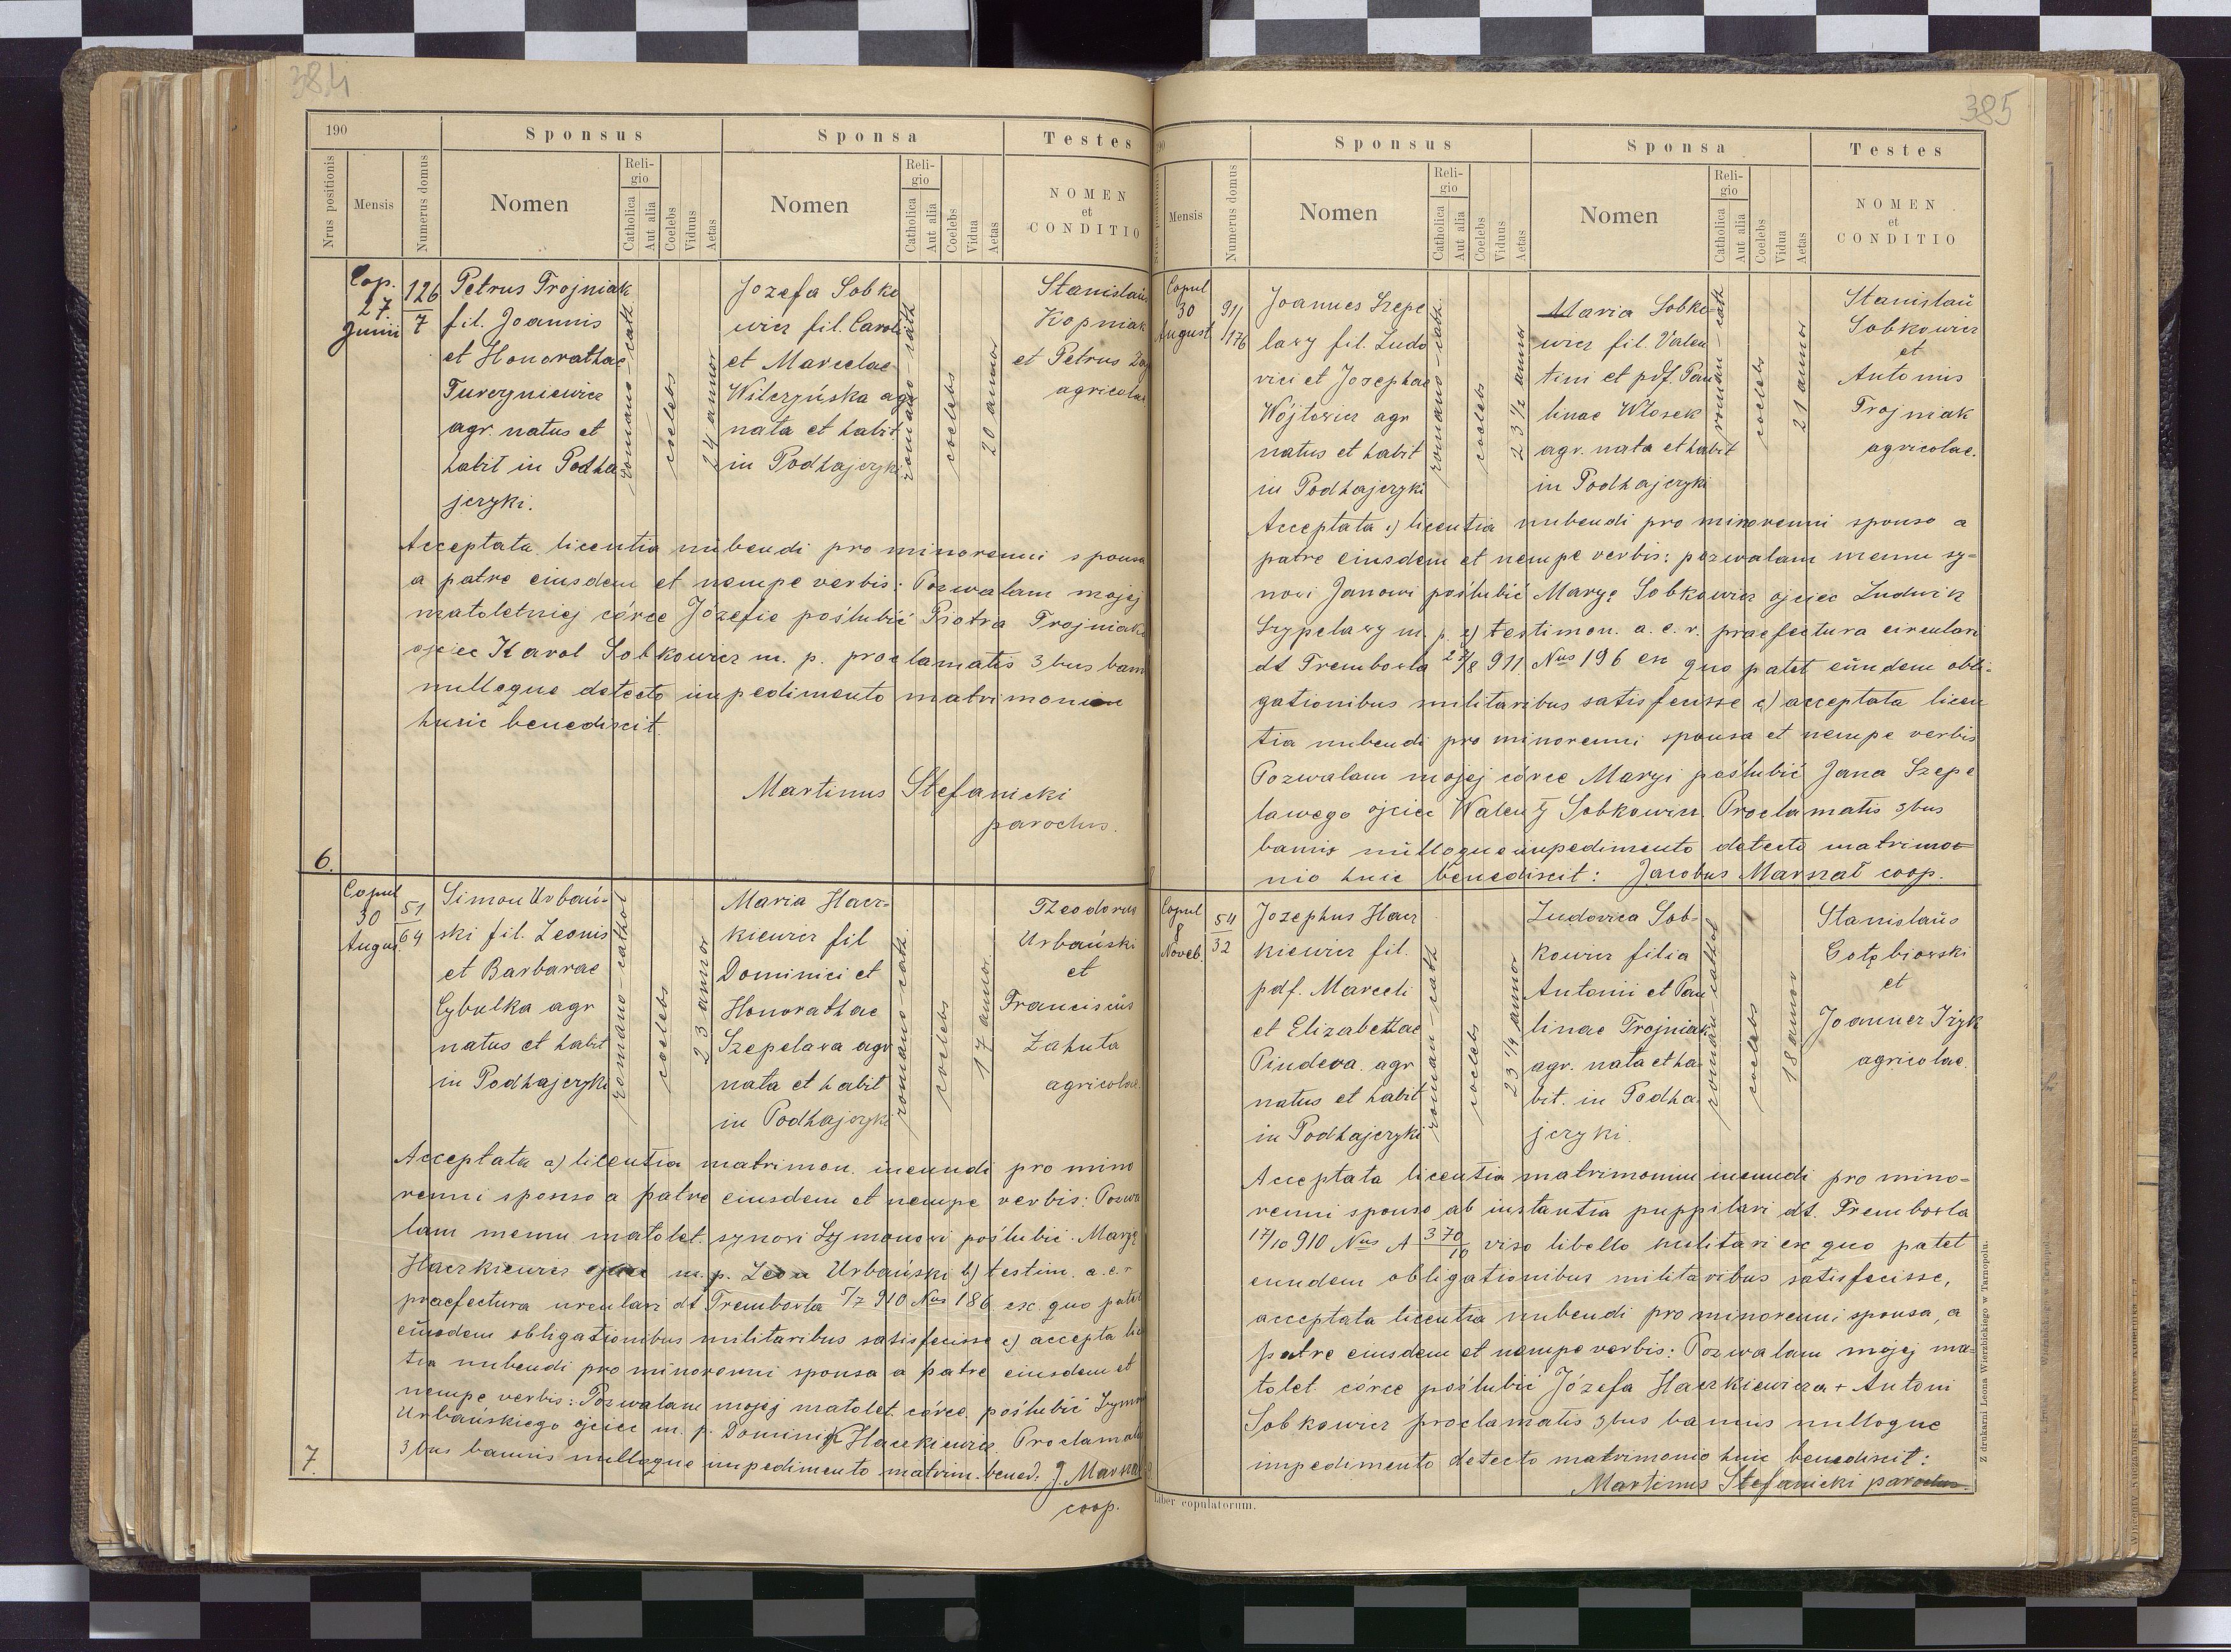 384
190
Sponsus
Sponsa
Testes
Nrus positionis
Mensis
Numerus domus
Nomen
Religio
Catholica
Aut alia
Coelebs
Viduus
Aetas
Nomen
Religio
Catholica
Aut alia
Coelebs
Vidua
Aetas
NOMEN
et
CONDITIO
6.
Cop.
27.
Junii
126
7
Petrus Trojniak
fil. Joannis
et Honorathae
Turczyniewicz
agr. natus et
habit in Podha
jczyki.
romano-cath.
coelebs
24 annor
Jozefa Sobko
wicz fil. Caroli
et Marcelae
Wilczyńska agr
nata et habit
in Podhajczyki
romano-cath
coelebs
20 annor
Stanislaus
Kopniak
et Petrus
agricolae
Acceptata licentia nubendi pro minorenni sponsa
a patre eiusdem et nempe verbis: Pozwalam mojej
małoletniej córce Józefie poślubić Piotra Trojniaka
ojciec Karol Sobkowicz m. p. proclamatis 3bus bann
nulloque detecto impedimento matrimonio
huic benedixit.
Martinus Stefanicki
parochus.
7.
Copul
30
August
51
64
Simon Urbań-
ski fil. Leonis
et Barbarae
Cybulka agr
natus et habit
in Podhajczyki
romano-cathol
coelebs
23 annor
Maria Hacz-
kiewicz fil
Dominici et
Honorathae
Szepelawa agr
nata et habit
in Podhajczyki
romano-cath.
coelebs
17 annor.
Theodorus
Urbański
et
Franciscus
Zahuta
agricolae
Acceptata a) licentia matrimon. ineundi pro mino
renni sponso a patre eiusdem et nempe verbis: Pozwa
lam memu małolet. synowi Szymonowi poślubić Maryę
Haczkiewicz ojciec m. p. Leon Urbański b) testim. a. c. r
praefectura circulari dt Trembowla 5/7 910 Nus 186 ex quo patet
eundem obligationibus militaribus satisfecisse c) accepta lic
tia nubendi pro minorenni sponsa a patre eiusdem et
nempe verbis: Pozwalam mojej małolet córce poślubić Szym
Urbańskiego ojciec m. p. Dominik Haczkiewicz. Proclamatis
3bus bannis nulloque impedimento matrim. bened. J. Marszał
coop.
385
190
Sponsus
Sponsa
Testes
Mensis
Numerus domus
Nomen
Religio
Catholica
Aut alia
Coelebs
Viduus
Aetas
Nomen
Religio
Catholica
Aut alia
Coelebs
Vidua
Aetas
NOMEN
et
CONDITIO
Copul
30
August
911
176
Joannes Szepe
lawy fil. Ludo
vici et Josephae
Wójtowicz agr
natus et habit
in Podhajczyki
romano-cath.
coelebs
23 1/2 annor
Maria Sobko
wicz fil. Valen
tini et pdf. Pau
linae Włosek
agr. nata et habit
in Podhajczyki
roman-cath
coelebs
21 annor
Stanislaŭ
Sobkowicz
et
Antonius
Trojniak
agricolae.
Acceptata a) licentia nubendi pro minorenni sponso a
patre eiusdem et nempe verbis: pozwalam memu sy-
nowi Janowi poślubić Maryę Sobkowicz ojciec Ludwik
Szypelawy m. p. b) testimon. a. c. r. praefectura circulari
dt Trembowla 27/8 911 Nus 196 ex quo patet eundem obli-
gationibus militaribus satisfecisse c) acceptata licen
tia nubendi pro minorenni sponsa et nempe verbis
Pozwalam mojej córce Maryi poślubić Jana Szepe
lawego ojciec Walenty Sobkowicz. Proclamatis 3bus
bannis nulloque impedimento detecto matrimo-
nio huic benedixit: Jacobus Marszał coop.
Copul
8
Noveb.
54
32
Josephus Hacz
kiewicz fil.
pdf. Marceli
et Elizabethae
Pindera. agr
natus et habit
in Podhajczyki
roman-cath
coelebs
23 1/4 annor
Ludovica Sob-
kowicz filia
Antonii et Pau
linae Trojniak
agr. nata et ha
bit. in Podha
jczyki.
roman-cathol
coelebs
18 annor
Stanislaŭs
Gołębiowski
et
Joannes
agricolae.
Acceptata licentia matrimonium ineundi pro mino-
renni sponso ab instantia puppilari dt. Trembowla
17/10 910 Nus A 370/10 viso libello militari ex quo patet
eundem obligationibus militaribus satisfecisse,
acceptata licentia nubendi pro minorenni sponsa, a
patre eiusdem et nempe verbis: Pozwalam mojej ma-
łolet. córce poślubić Józefa Haczkiewicza + Antoni
Sobkowicz proclamatis 3bus bannis nulloque
impedimento detecto matrimonio huic benedixit:
Martinus Stefanicki parochus.
Liber copulatorum.
Z drukarni Leona Wierzbickiego w Tarnopolu.